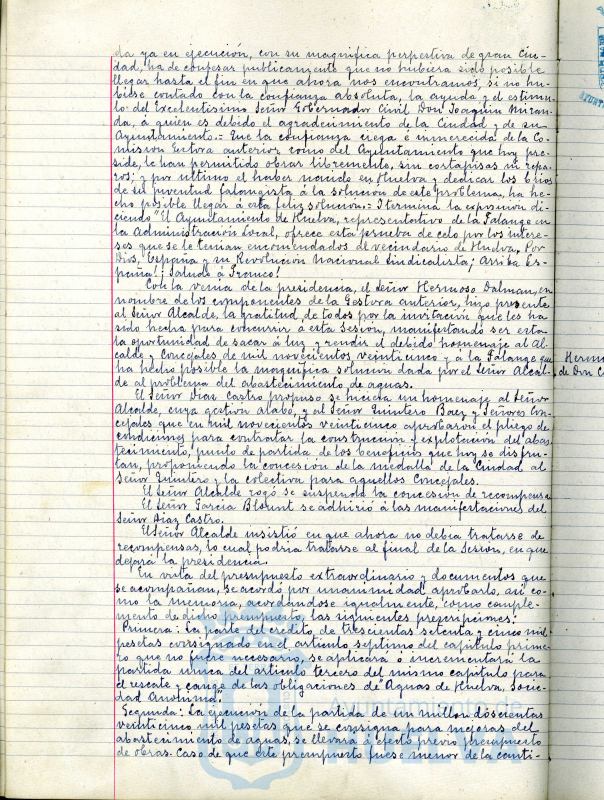 da ya en ejecución, con su magnifica perpestiva de gran Ciu-
dad, ha de confesar publicamente que no hubiera sido posible
llegar hasta el fin en que ahora nos encontramos, si no hu-
biese contado con la confianza absoluta, la ayuda y el estimu-
lo del Excelentisimo Señor Gobernador Civil Don Joaquin Miran-
da, á quien es debido el agradecimiento de la Ciudad y de su
Ayuntamiento.= Que la confianza ciega é inmerecida de la Co-
mision Gestora anterior, como del Ayuntamiento que hoy pre-
side, le han permitido obrar libremente, sin cortapisas ni repa-
ros; y por ultimo el haber nacido en Huelva y dedicar los brios
de su juventud falangista á la solucion de este problema, ha he-
cho posible llegar á esta feliz solucion.= I termina la expresion di-
ciendo "El Ayuntamiento de Huelva, representativo de la Falange en
la Administración Local, ofrece esta prueba de celo por los intere-
ses que se le tenian encomendados de vecindario de Huelva, Por
Dios, España y su Revolución Nacional Sindicalista; Arriba Es-
paña! ¡Saludo á Franco!
Con la venia de la presidencia, el Señor Hermoso Dalman, en
nombre de los componentes de la Gestora anterior, hizo presente
al Señor Alcalde, la gratitud de todos por la invitación que les ha
sido hecha para concurrir a esta Sesión, manifestando ser esta
la oportunidad de sacar á luz y rendir el debido homenaje al Al-
calde y Concejales de mil novecientos veinticinco y á la Falange que
ha hecho posible la magnifica solucion dada por el Señor Alcal-
de al problema del abastecimiento de aguas.
El Señor Diaz Castro propuso se hiciera un homenaje al Señor
Alcalde, cuya gestion alabó, y al Señor Quintero Baez y Señores Con-
cejales que en mil novecientos veinticinco aprobaron el pliego de
condiciones para contratar la construcción y explotación del abas-
tecimiento, punto de partida de los beneficios que hoy se disfru-
tan, proponiendo la concesión de la medalla de la Ciudad al
Señor Quintero y la colectiva para aquellos Concejales.
El Señor Alcalde rogó se suspenda la concesion de recompensas
El Señor Garcia Blount se adhirió á las manifestaciones del
Señor Diaz Castro.
El Señor Alcalde insistió en que ahora no debia tratarse de
recompensas, lo cual podria tratarse al final de la Sesion, en que
dejará la presidencia.
En vista del presupuesto extraordinario y documentos que
se acompañan, se acordó por unanimidad aprobarlo, asi co-
mo la memoria, acordándose igualmente, como comple-
mento de dicho presupuesto, las siguientes prescripciones:
Primera: La parte del credito de trescientas setenta y cinco mil
pesetas consignado en el articulo septimo del capitulo prime-
ro que no fuere necesario, se aplicará o incrementará la
partida unica del articulo tercero del mismo capitulo para
el rescate y canje de las obligaciones de "Aguas de Huelva, Socie-
dad Anonima".
Segunda: La ejecucion de la partida de un millon doscientas
veinticinco mil pesetas que se consigna para mejoras del
abastecimiento de aguas, se llevará á efecto previo presupuesto
de obras. Caso de que este presupuesto fuese menor de la canti-
Hermo
de Don C
Ayuntamiento de